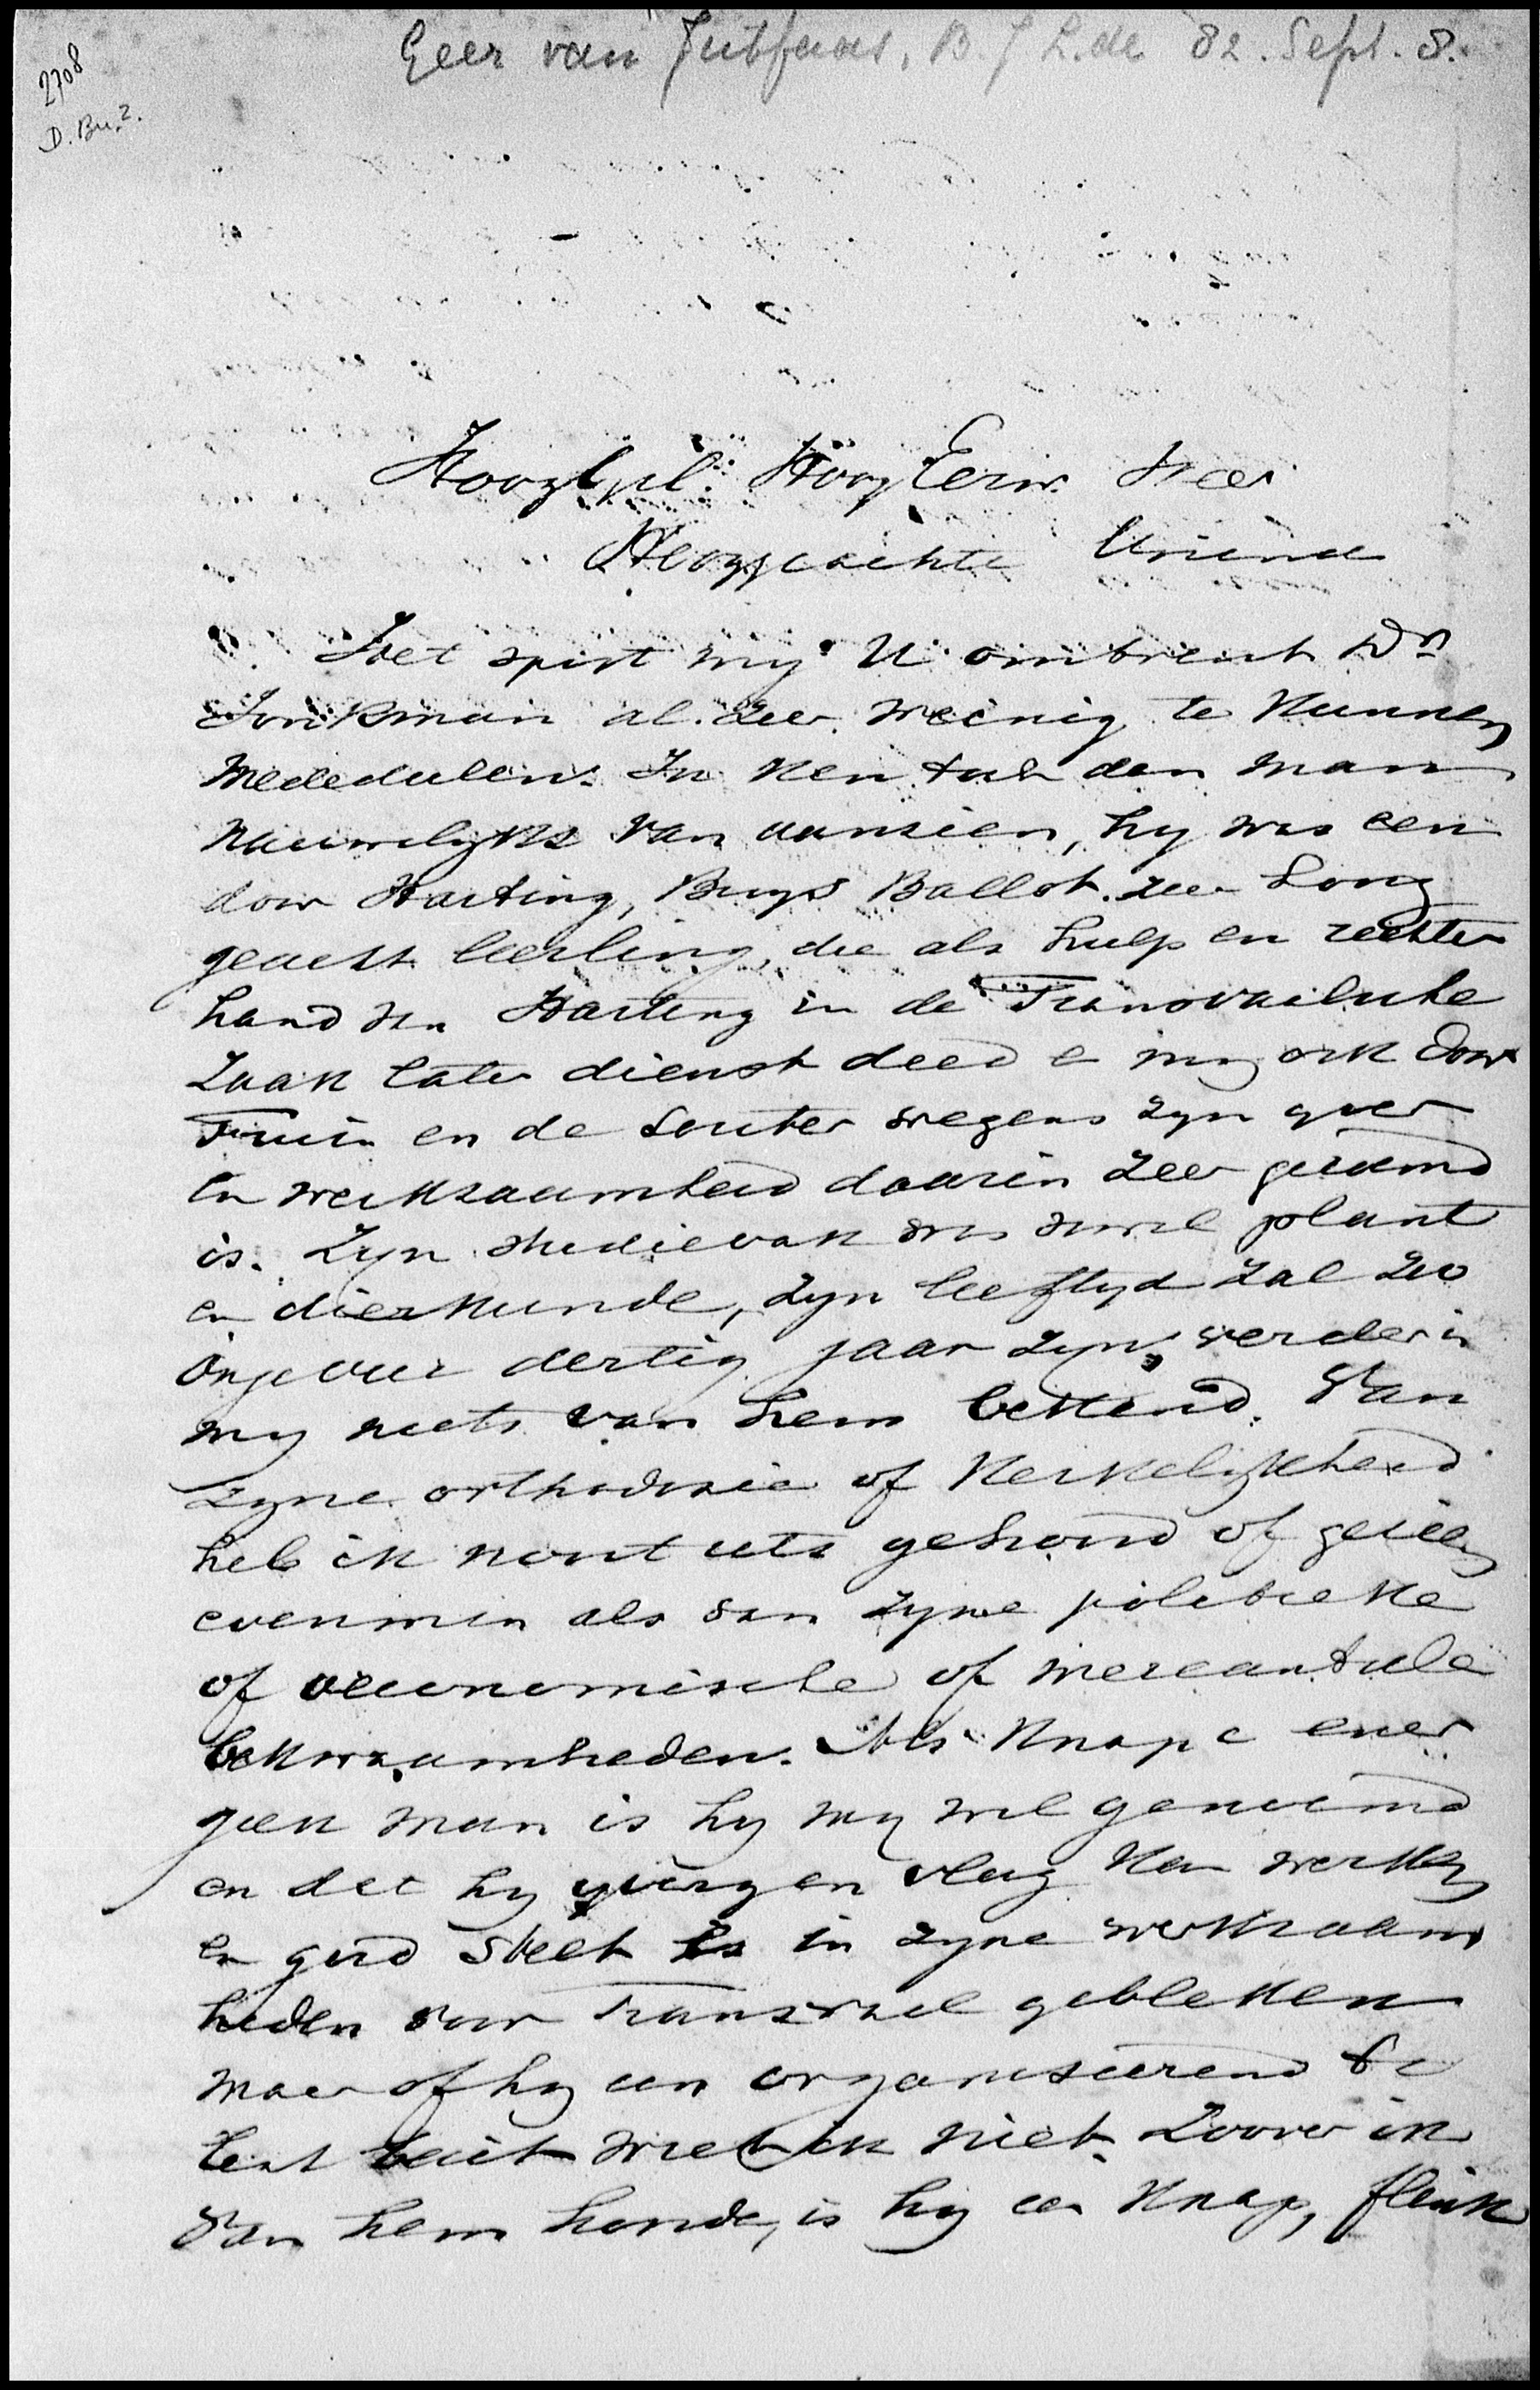 Geer van Jutfaas, B.J.L. de 82. Sept. 8.
2708
D. Bu. 2.
HoogEgel. HoogEerw. Heer
Hooggeachte Vriend
Het spijt mij U omtrent Dr
Jonkman al zeer weinig te kunnen
mededeelen. Ik ken toch den man
nauwelijks van aanzien, hij was een
door Harting, Buys Ballot zeer hoog
geacht leerling, die als hulp en rechter
hand van Harting in de Transvaalsche
Zaak later dienst deed en mij ook door
Fruin en de Louter wegens zijn yver
en werkzaamheid daarin zeer geroemd
is. Zijn studievak was wel plant
en dierkunde, zijn leeftijd zal zoo
ongeveer dertig jaar zijn, verder is
mij niets van hem bekend. Van
zijne orthodoxie of Kerkelijkheid
heb ik nooit iets gehoord of gezien
evenmin als van zijne politieke
of oeconomische of mercantiele
bekwaamheden. Als knap e ener
giek man is hij mij wel genoemd
en dat hij yverig en vlug kan werken
en goed steekt is in zijne werkzaam
heden voor Transvaal gebleken
maar of hij een organiseerend ta
lent bezit weet ik niet. Zoover ik
van hem hoorde, is hij een knap, flink